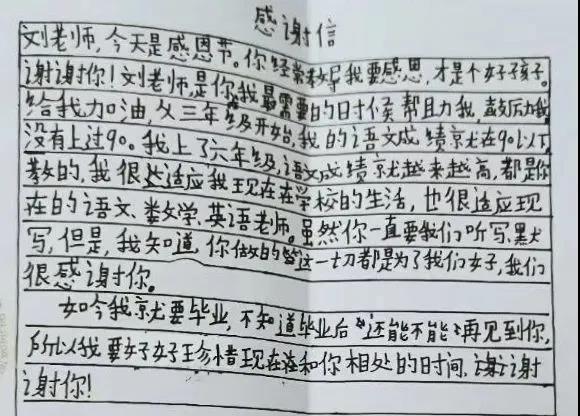 感谢信
刘老师,今天是感恩节。你经常教导我要感恩,才是个好孩子。
谢谢你!刘老师,是你我最需要的时候帮助我,鼓励我,
给我加油,从三年级开始,我的语文成绩就在90以下,
没有上过90。我上了六年级,语文成绩就越来越高,都是你
教的,我很适应我现在在学校的生活,也很适应现
在的语文、数学、英语老师。虽然你一直要我们听写,默
写,但是,我知道,你做的这一切都是为了我们好,我们
很感谢你。
如今我就要毕业,不知道毕业后还能不能再见到你,
所以我要好好珍惜现在和你相处的时间,谢谢
谢你!